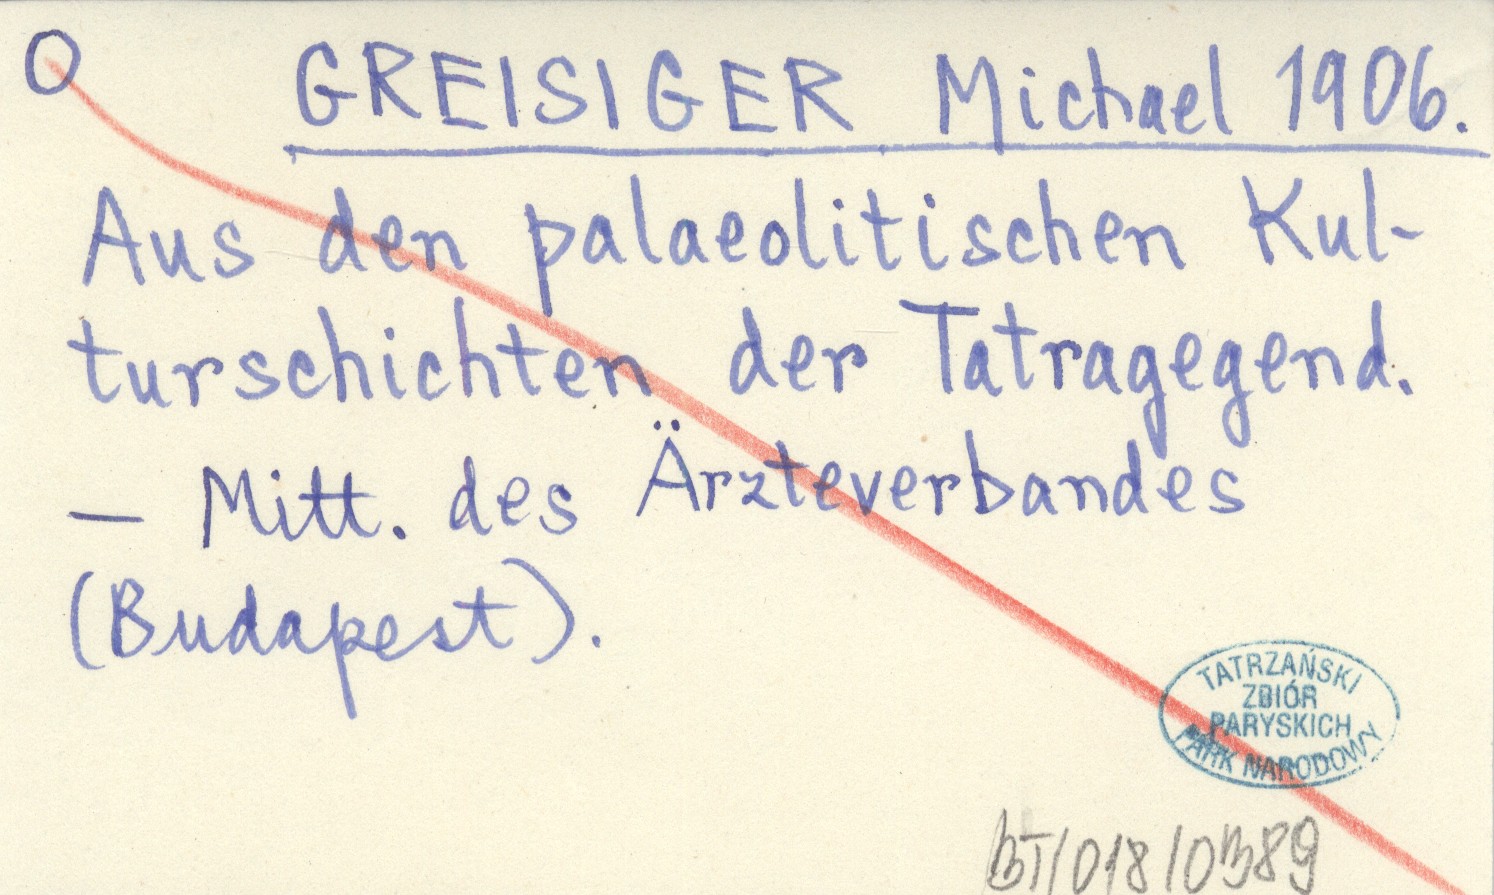 O GREISIGER Michael 1906.
Aus den palaeolitischen Kul-
turschichten der Tatragegend.
— Mitt. des Ärzteverbandes
(Budapest).
TATRZAŃSKI
ZBIÓR
PARYSKICH
PARK NARODOWY